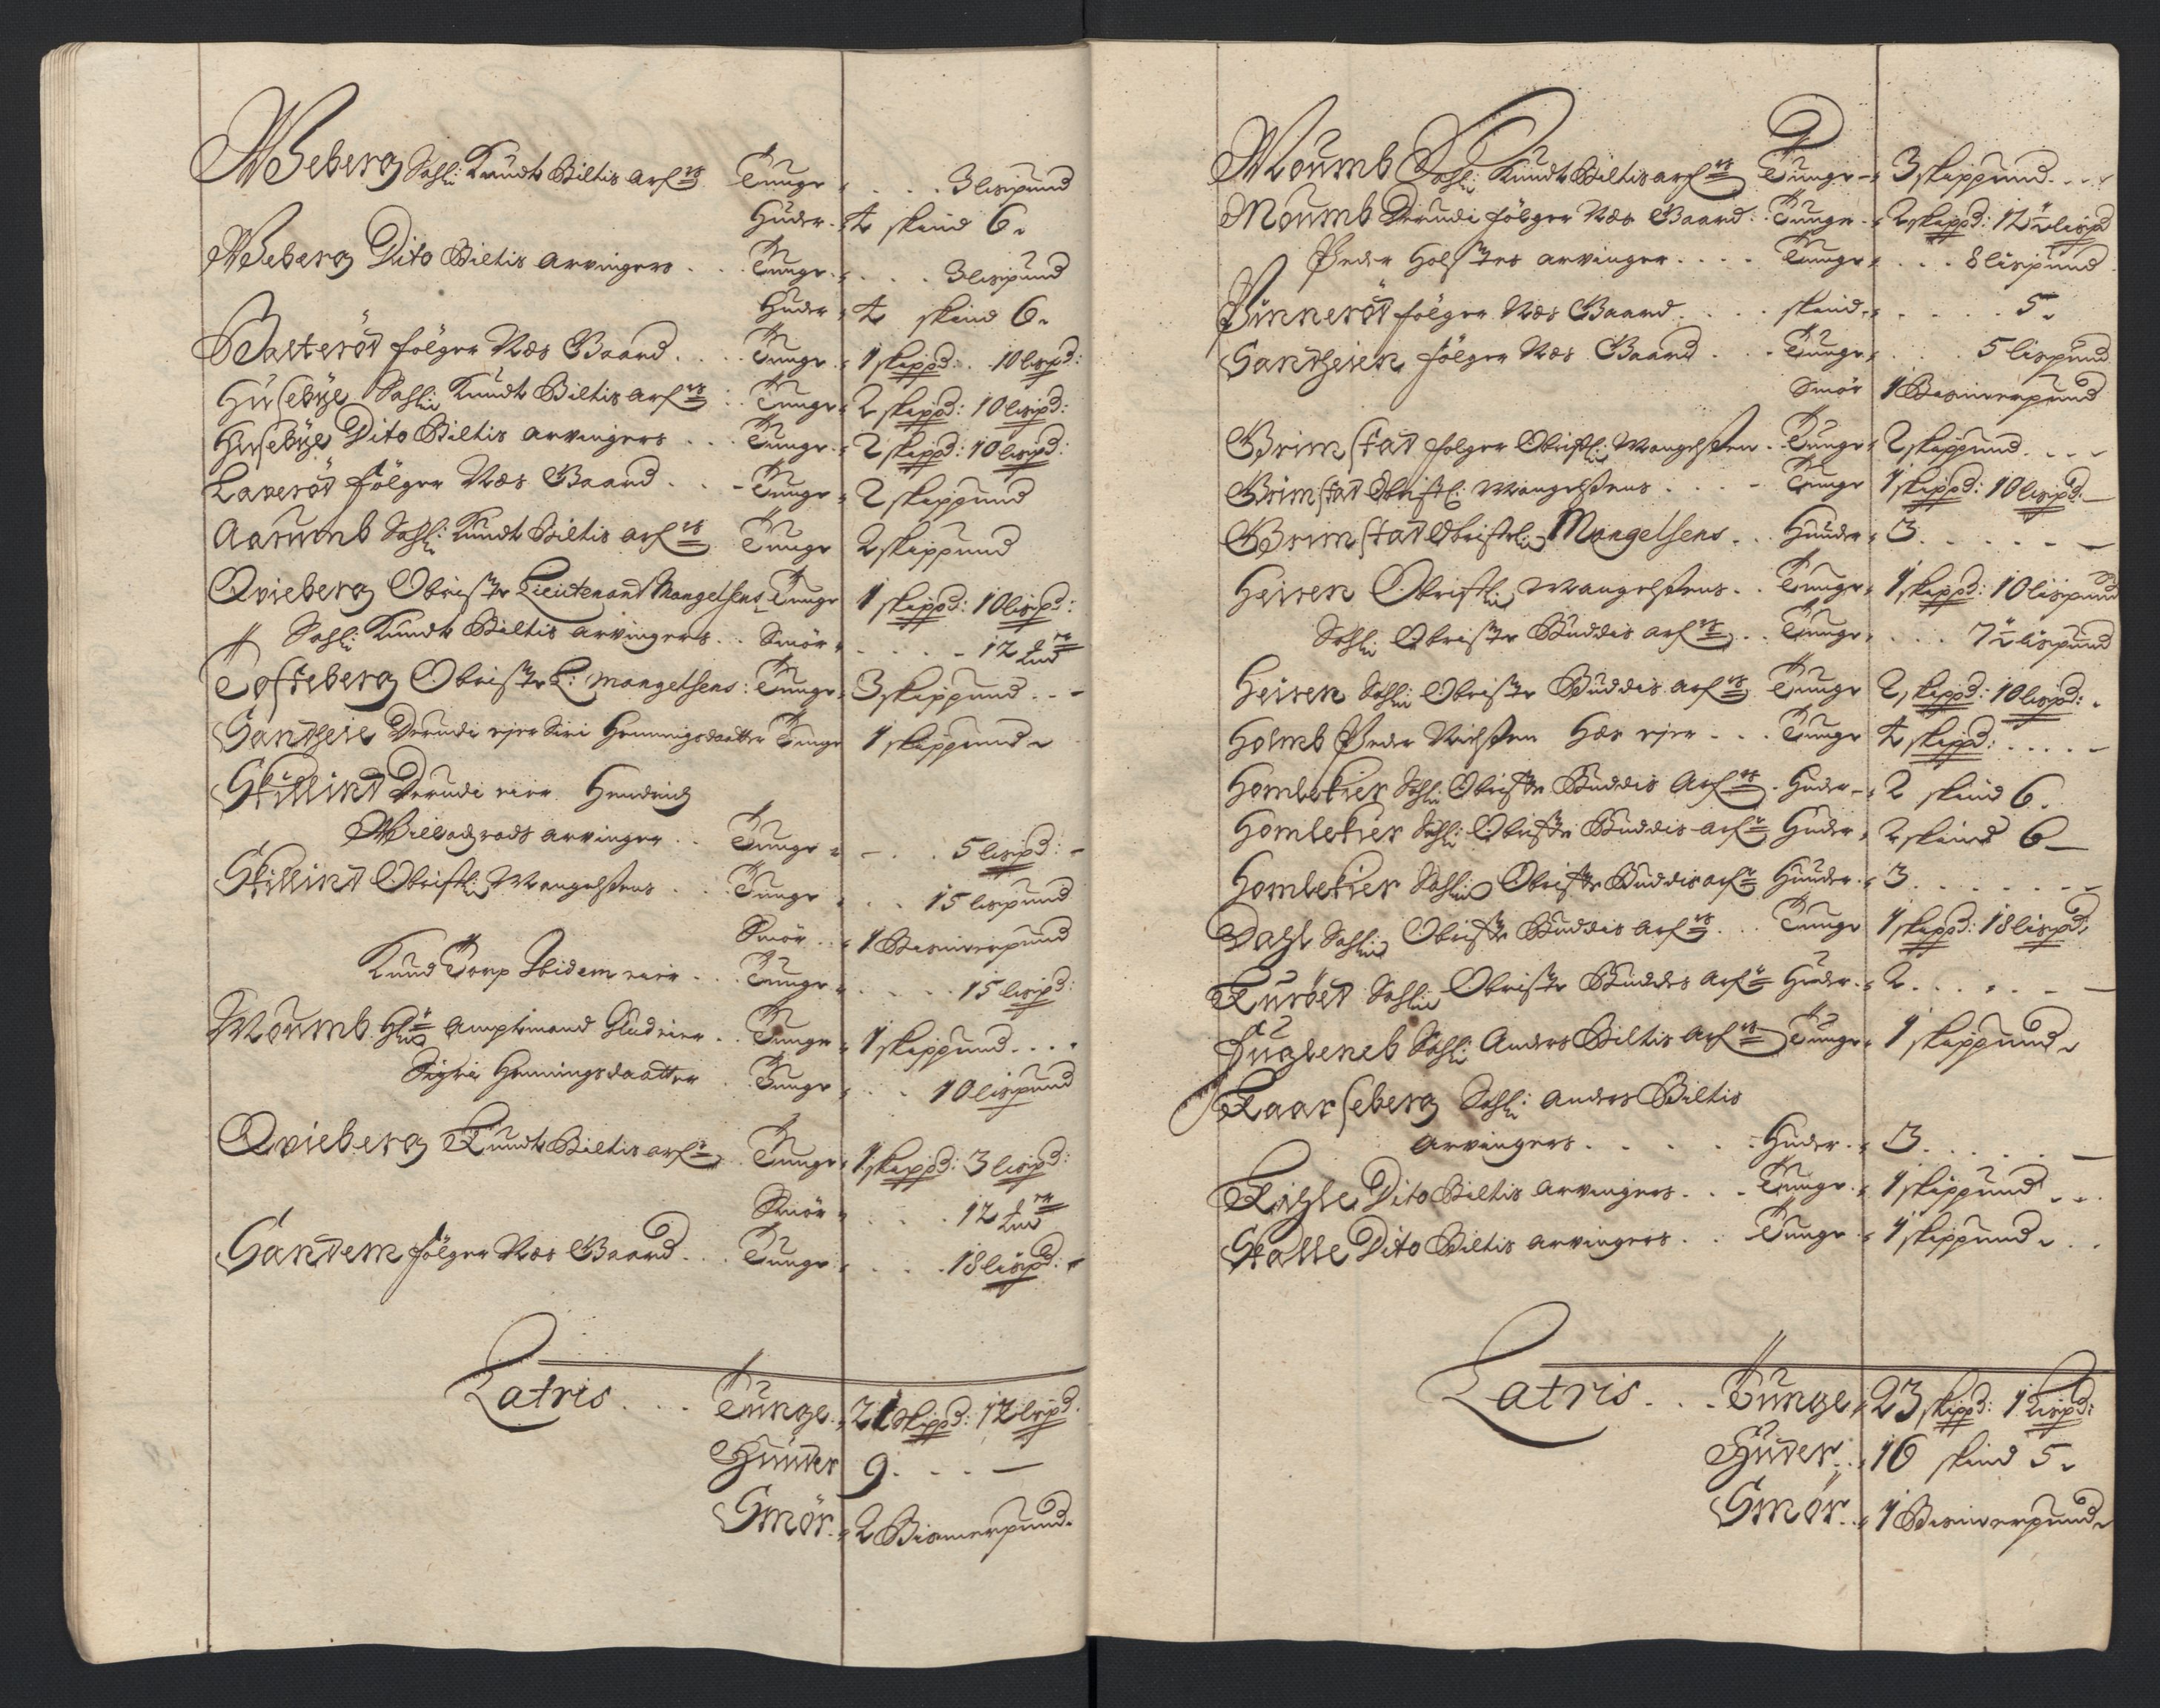 Weberg Sahli: Knudt Biltis arf:rs Tunge - . . . 3 lispund
Huder - 4 skind 6.
Weberg Dito Biltis arvingers . . Tunge - . . . 3 lispund
Huder - 4 skind 6.
Balterød følger Næs Gaard . . . Tunge - 1 skippd: . 10 lispd:
Husebye Sahli: Knudt Biltis arf:rs : Tunge - 2 skippd: 10 lispd:
Husebye Dito Biltis arvingers . . . Tunge - 2 skippd: 10 lispd:
Lanerød følger Næs Gaard . . . Tunge - 2 skippund
Aarumb Sahli: Knudt Biltis arf:rs Tunge 2 skippund
Qvieberg Obrister Lieutenant Mangelsens Tunge 1 skippd: 10 lispd:
Sahli: Knudt Biltis arvingers . . Smør - . . . . 12
Tofteberg Obrister L: Mangelsens : Tunge - 3 skippund . . -
Sandheie Derudi ejer Siri Henningsdaatter Tunge 1 skippund
Skillind Derudi eier Hendrich
arvinger . . Tunge - - . . 5 lispd: -
Skillind Obristli: Mangelsens . . . Tunge - . . 15 lispund
Smør . . - 1 Bismerpund
Knud Torp Ibidem eier . . . Tunge - . . . . 15 lispd:
Moumb Amptmand eier . . Tunge - 1 skippund . . . .
Sigri Henningsdaatter . Tunge - . . 10 lispund
Qvieberg Knudt Biltis arf: . Tunge - 1 skippd: 3 lispd:
Smør - . . . 12
Sandem følger Næs Gaard . . . Tunge - . . . 18 lispd: -
Latris . . . Tunge - 21 skippd: 12 lispd.
Huuder 9 . . . . —
Smør . - 2 Bismerpund.
9
Moumb Sahli: Knudt Biltis arf:rs Tunge - 3 skippund . . . .
Moumb Derudi følger Næs Gaard : Tunge - 2 skippd: 12½ lispd
Peder Holsters arvinger . . . . Tunge - . . . 8 lispund
Binnerød følger Næs Gaard . . . . skind - . . . . . 5.
Sandheien følger Næs Gaard . . . Tunge - . . . 5 lispund
Smør 1 Bismerpund
Grimstad følger Obristli: Mangelsen . Tunge - 2 skippund . . . -
Grimstad Obristl: Mangelsens . . . - Tunge 1 skippd: 10 lispd: —
Grimstad Obristli: Mangelsens . . Huuder - 3 . . . . - —
Heisen Obristli: Mangelsens . . Tunge - 1 skippd: 10 lispund
Sahli: Obrister Buddis arf:rs . . Tunge - . . . 7½ lispund
Heisen Sahli: Obrister Buddis arf:rs Tunge 2 skippd: 10 lispd: .
Holmb Peder Nielsen Hæs ejer . . . Tunge 4 skippd: . . . . -
Homlekier Sahli: Obrister Buddis Arf:rs . Huder - 2 skind 6.
Homlekier Sahli: Obrister Buddis arf: Huder - 2 skind 6 —
Homlekier Sahli: Obrister Buddis arf: Huuder - 3 . . . . . . -
Dahl Sahli: Obrister Buddis arf:rs . . Tunge 1 skippd: 18 lispd:
Kurød Sahli: Obrister Buddes Arf: Huder - 2 . . . . . —
Fugleneb Sahli: Anders Biltis Arf:rs Tunge - 1 skippund
Kaarseberg Sahli: Anders Biltis
Arvingers . . . . . . Huder - 3 . . . . . —
Kihle Dito Biltis Arvingers . . . Tunge - 1 skippund . . .
Skalle Dito Biltis Arvingers . . . Tunge - 1 skippund . . .
Latris . . . Tunge - 23 skippd: 1 lispd:
Huder . . 16 skind 5.
Smør . . - 1 Bismerpund